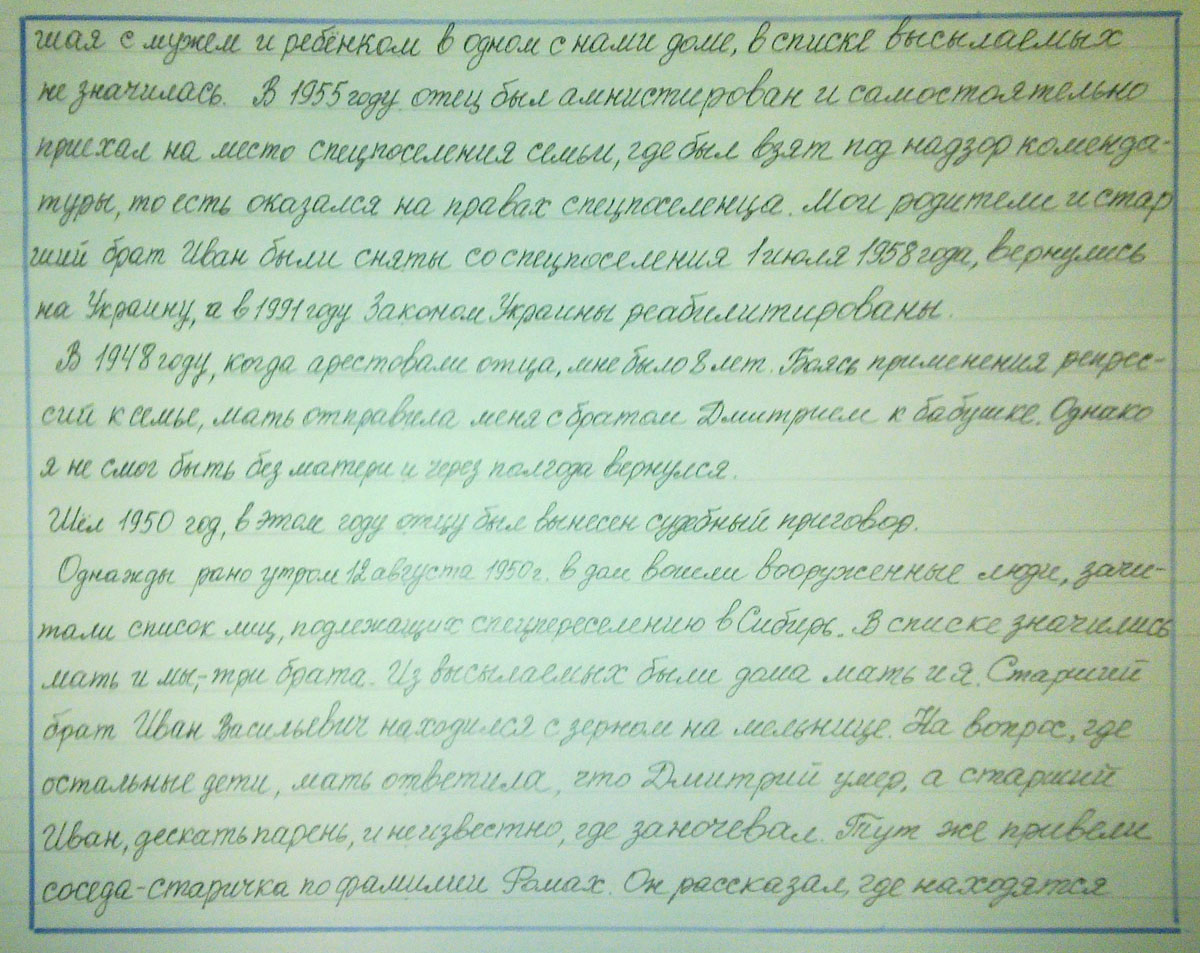 шая с мужем и ребёнком в одном с нами доме, в списке высылаемых
не значилась. В 1955 году отец был амнистирован и самостоятельно
приехал на место спецпоселения семьи, где был взят под надзор коменда-
туры, то есть оказался на правах спецпоселенца. Мои родители и стар
ший брат Иван были сняты со спецпоселения 1 июля 1958 года, вернулись
на Украину, а в 1991 году Законом Украины реабилитированы.
В 1948 году, когда арестовали отца, мне было 8 лет. Боясь применения репрес-
сий к семье, мать отправила меня с братом Дмитрием к бабушке. Однако
я не смог быть без матери и через полгода вернулся.
Шёл 1950 год, в этом году отцу был вынесен судебный приговор.
Однажды рано утром 12 августа 1950 г. в дом вошли вооруженные люди, зачи-
тали список лиц, подлежащих спецпереселению в Сибирь. В списке значились
мать и мы,-три брата. Из высылаемых были дома мать и я. Старший
брат Иван Васильевич находился с зерном на мельнице. На вопрос, где
остальные дети, мать ответила, что Дмитрий умер, а старший
Иван, дескать парень, и неизвестно, где заночевал. Тут же привели
соседа-старичка по фамилии Ромах. Он рассказал, где находятся